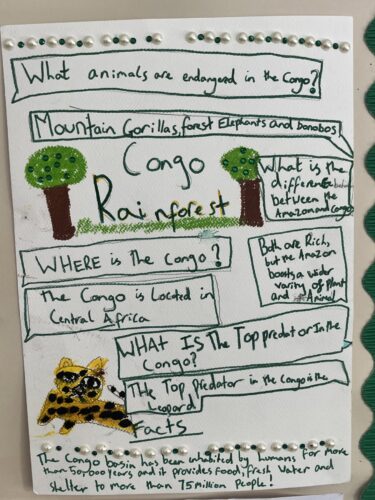 What animals are endangered in the Congo?
Mountain Gorillas, forest Elephants and bonobos
Congo
Rainforest
What is the
difference
between the
Amazon and Congo
WHERE is the Congo?
Both are Rich,
but the Amazon
boasts a wider
varity of plant
and Animal
the Congo is Located in
Central Africa
WHAT IS The Top predator In the
Congo?
THe Top Predator in the Congo is the
leopard
Facts
The Congo basin has been inhabited by humans for more
than 50,000 years and it provides food, fresh water and
shelter to more than 75 million people!